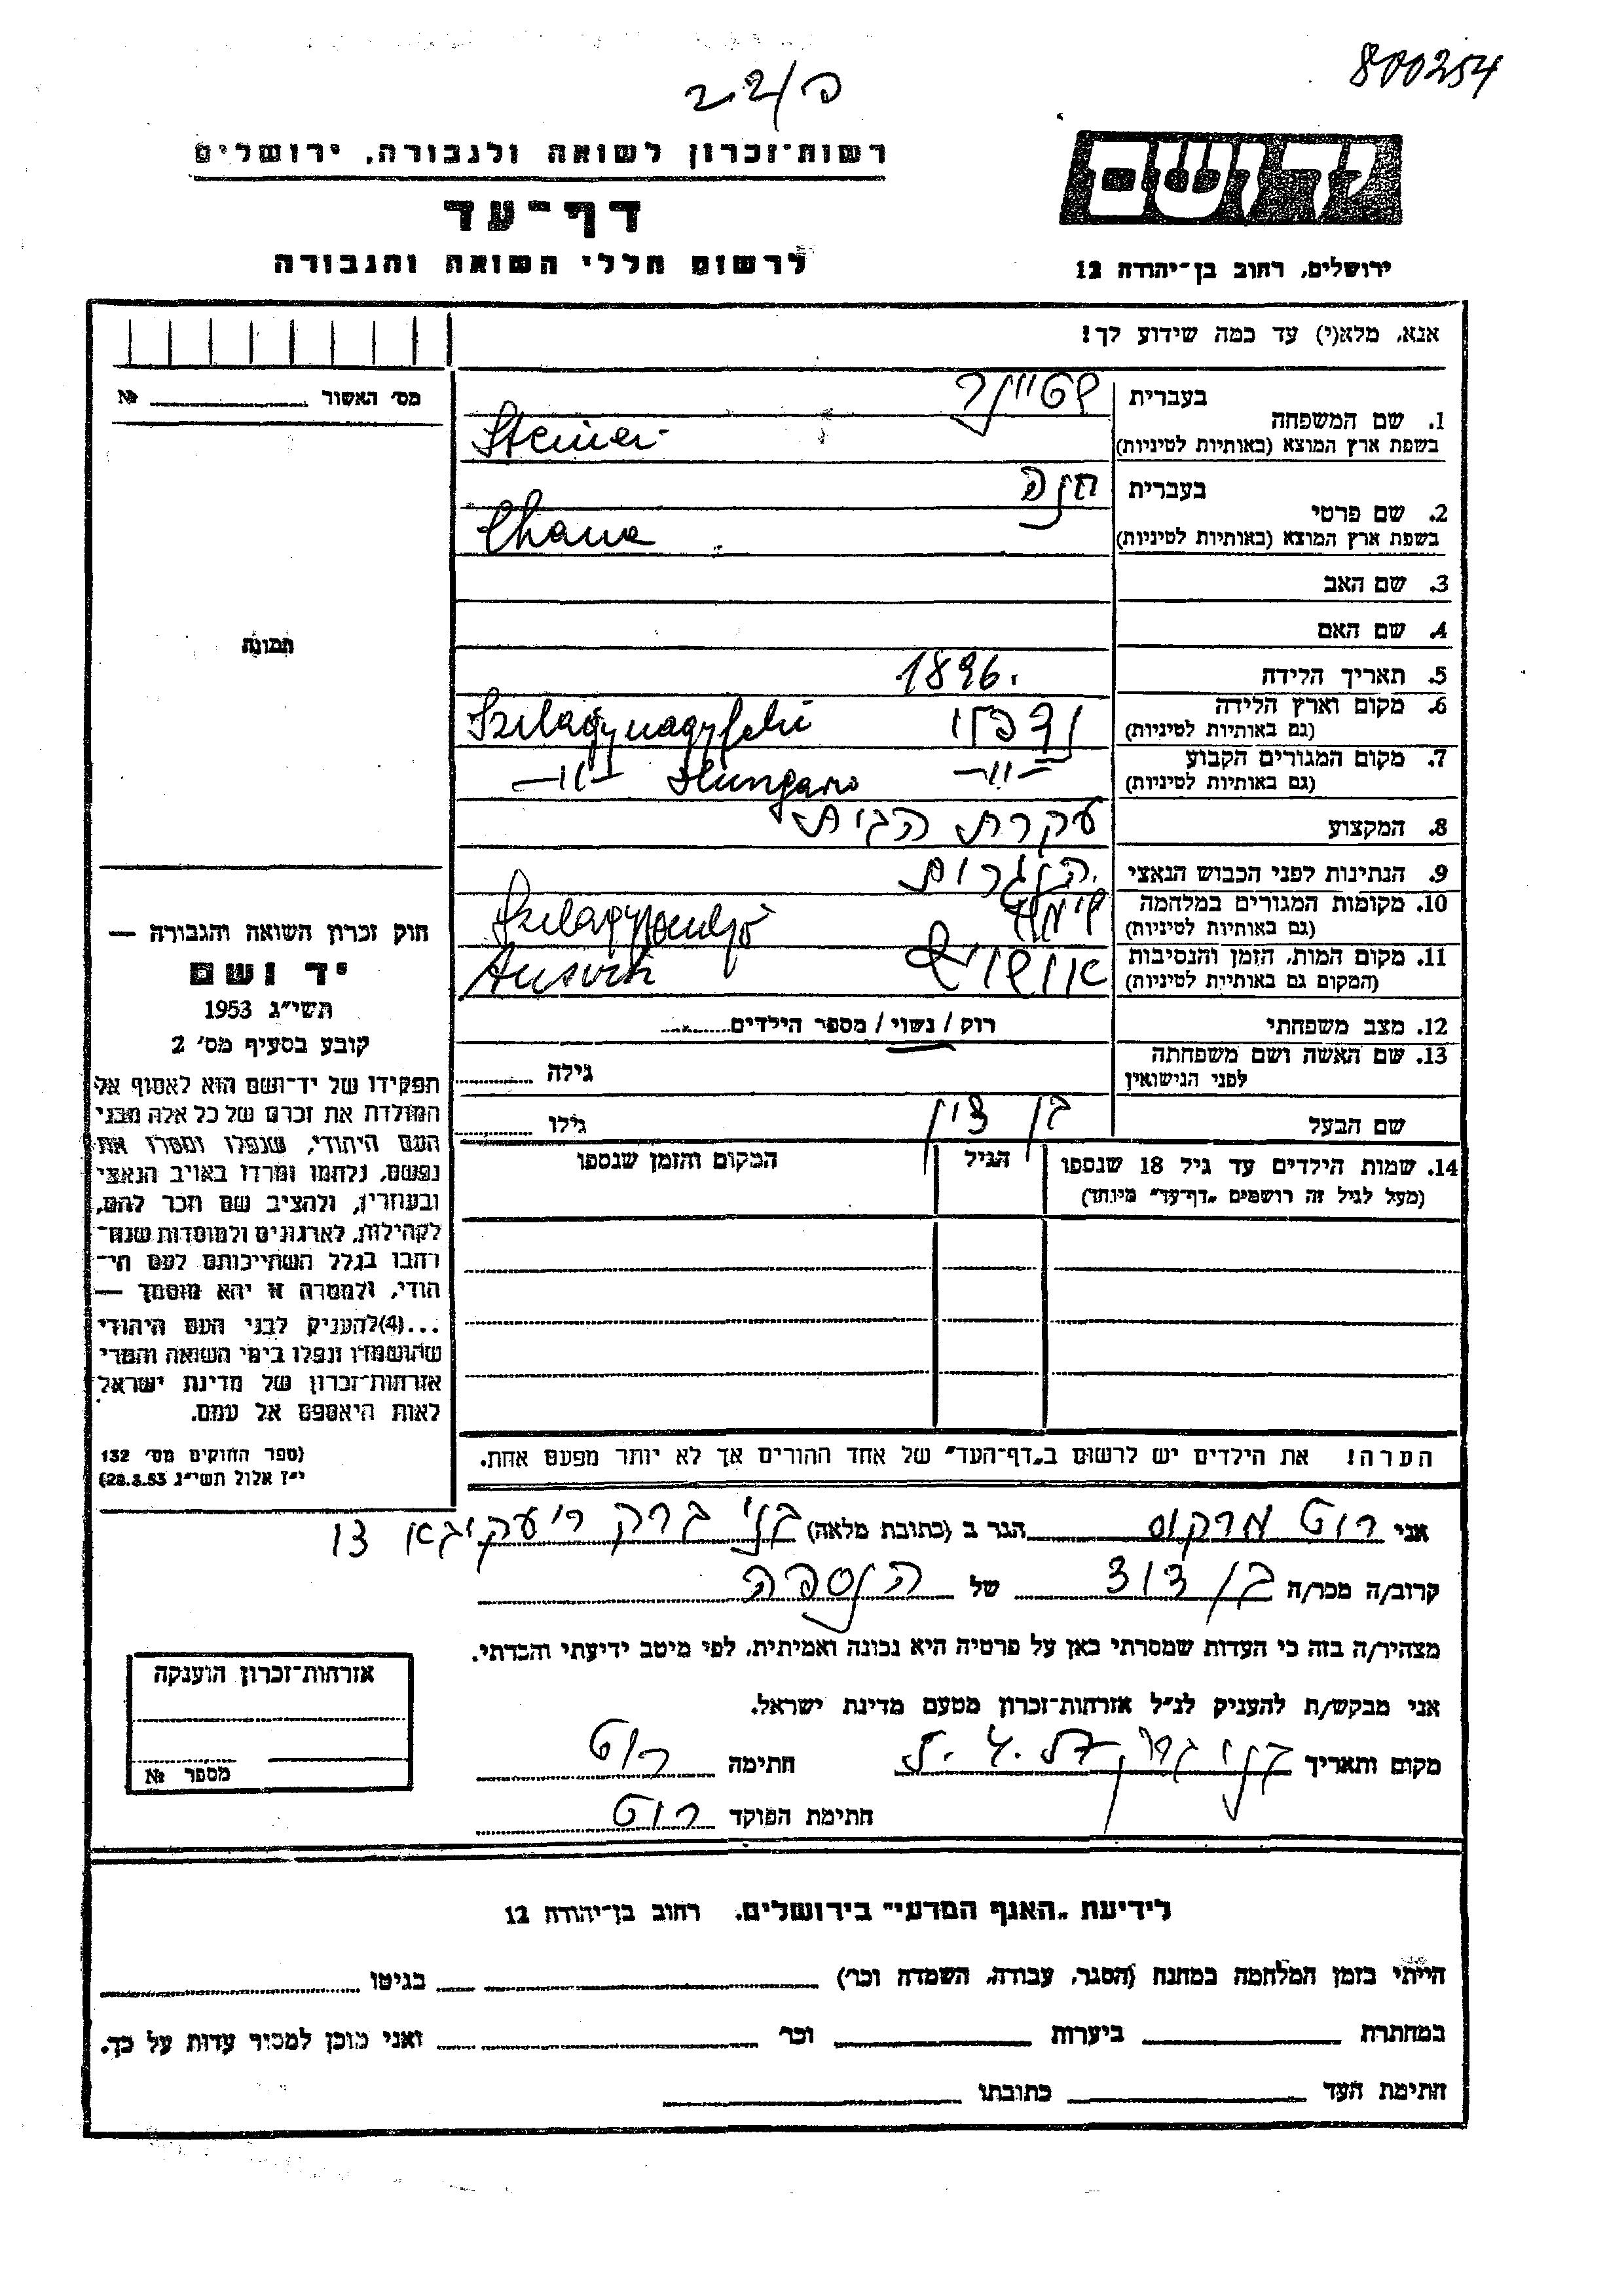 800254
22/ פ
ידושם
רשות־זכרון לשואה ולגבורה, ירושלים
דף־עד
לרשום חללי השואה והגבורה
ירושלים, רחוב בן־יהודה 12
אנא, מלא(י) עד כמה שידוע לך!
מס׳ האשור № 
בעברית שטיינר
1. שם המשפחה
בשפת ארץ המוצא (באותיות לטיניות) Steiner
בעברית חנה
2. שם פרטי
בשפת ארץ המוצא (באותיות לטיניות) Chana
3. שם האב
4. שם האם
תמונה
5. תאריך הלידה 1896.
6. מקום וארץ הלידה
(גם באותיות לטיניות)
7. מקום המגורים הקבוע —״— Hungaro —״—
(גם באותיות לטיניות)
8. המקצוע עקרת הבית
9. הנתינות לפני הכבוש הנאצי הונגרית
10. מקומות המגורים במלחמה
(גם באותיות לטיניות)
11. מקום המות, הזמן והנסיבות אושויץ
(המקום גם באותיות לטיניות)
12. מצב משפחתי רוק / נשוי / מספר הילדים
13. שם האשה ושם משפחתה
לפני הנישואין גילה
שם הבעל בן ציון גילו
14. שמות הילדים עד גיל 18 שנספו הגיל המקום והזמן שנספו
(מעל לגיל זה רושמים „דף־עד״ מיוחד)
חוק זכרון השואה והגבורה —
יד ושם
תשי״ג 1953
קובע בסעיף מס׳ 2
תפקידו של יד־ושם הוא לאסוף אל
המולדת את זכרם של כל אלה מבני
העם היהודי, שנפלו ומסרו את
נפשם, נלחמו ומרדו באויב הנאצי
ובעוזריו, ולהציב שם וזכר להם,
לקהילות, לארגונים ולמוסדות שנח־
רבו בגלל השתייכותם לעם הי־
הודי, ולמטרה זו יהא מוסמך —
...(4)להעניק לבני העם היהודי
שהושמדו ונפלו בימי השואה והמרי
אזרחות־זכרון של מדינת ישראל
לאות היאספם אל עמם.
(ספר החוקים מס׳ 132
י״ז אלול תשי״ג 28.8.53)
הערה! את הילדים יש לרשום ב„דף־העד״ של אחד ההורים אך לא יותר מפעם אחת.
אני רוט מרקוס הגר ב (כתובת מלאה) בני ברק ר׳ עקיבא
קרוב/ה מכר/ה בן דוד של הנספה
מצהיר/ה בזה כי העדות שמסרתי כאן על פרטיה היא נכונה ואמיתית, לפי מיטב ידיעתי והכרתי.
אני מבקש/ת להעניק לנ״ל אזרחות־זכרון מטעם מדינת ישראל.
מקום ותאריך בני ברק חתימה רוט
חתימת הפוקד רוט
אזרחות־זכרון הוענקה
מספר №
לידיעת „האגף המדעי״ בירושלים, רחוב בן־יהודה 12
הייתי בזמן המלחמה במחנה (הסגר, עבודה, השמדה וכר) בגיטו
במחתרת ביערות וכר ואני מוכן למסור עדות על כך.
חתימת העד כתובתו